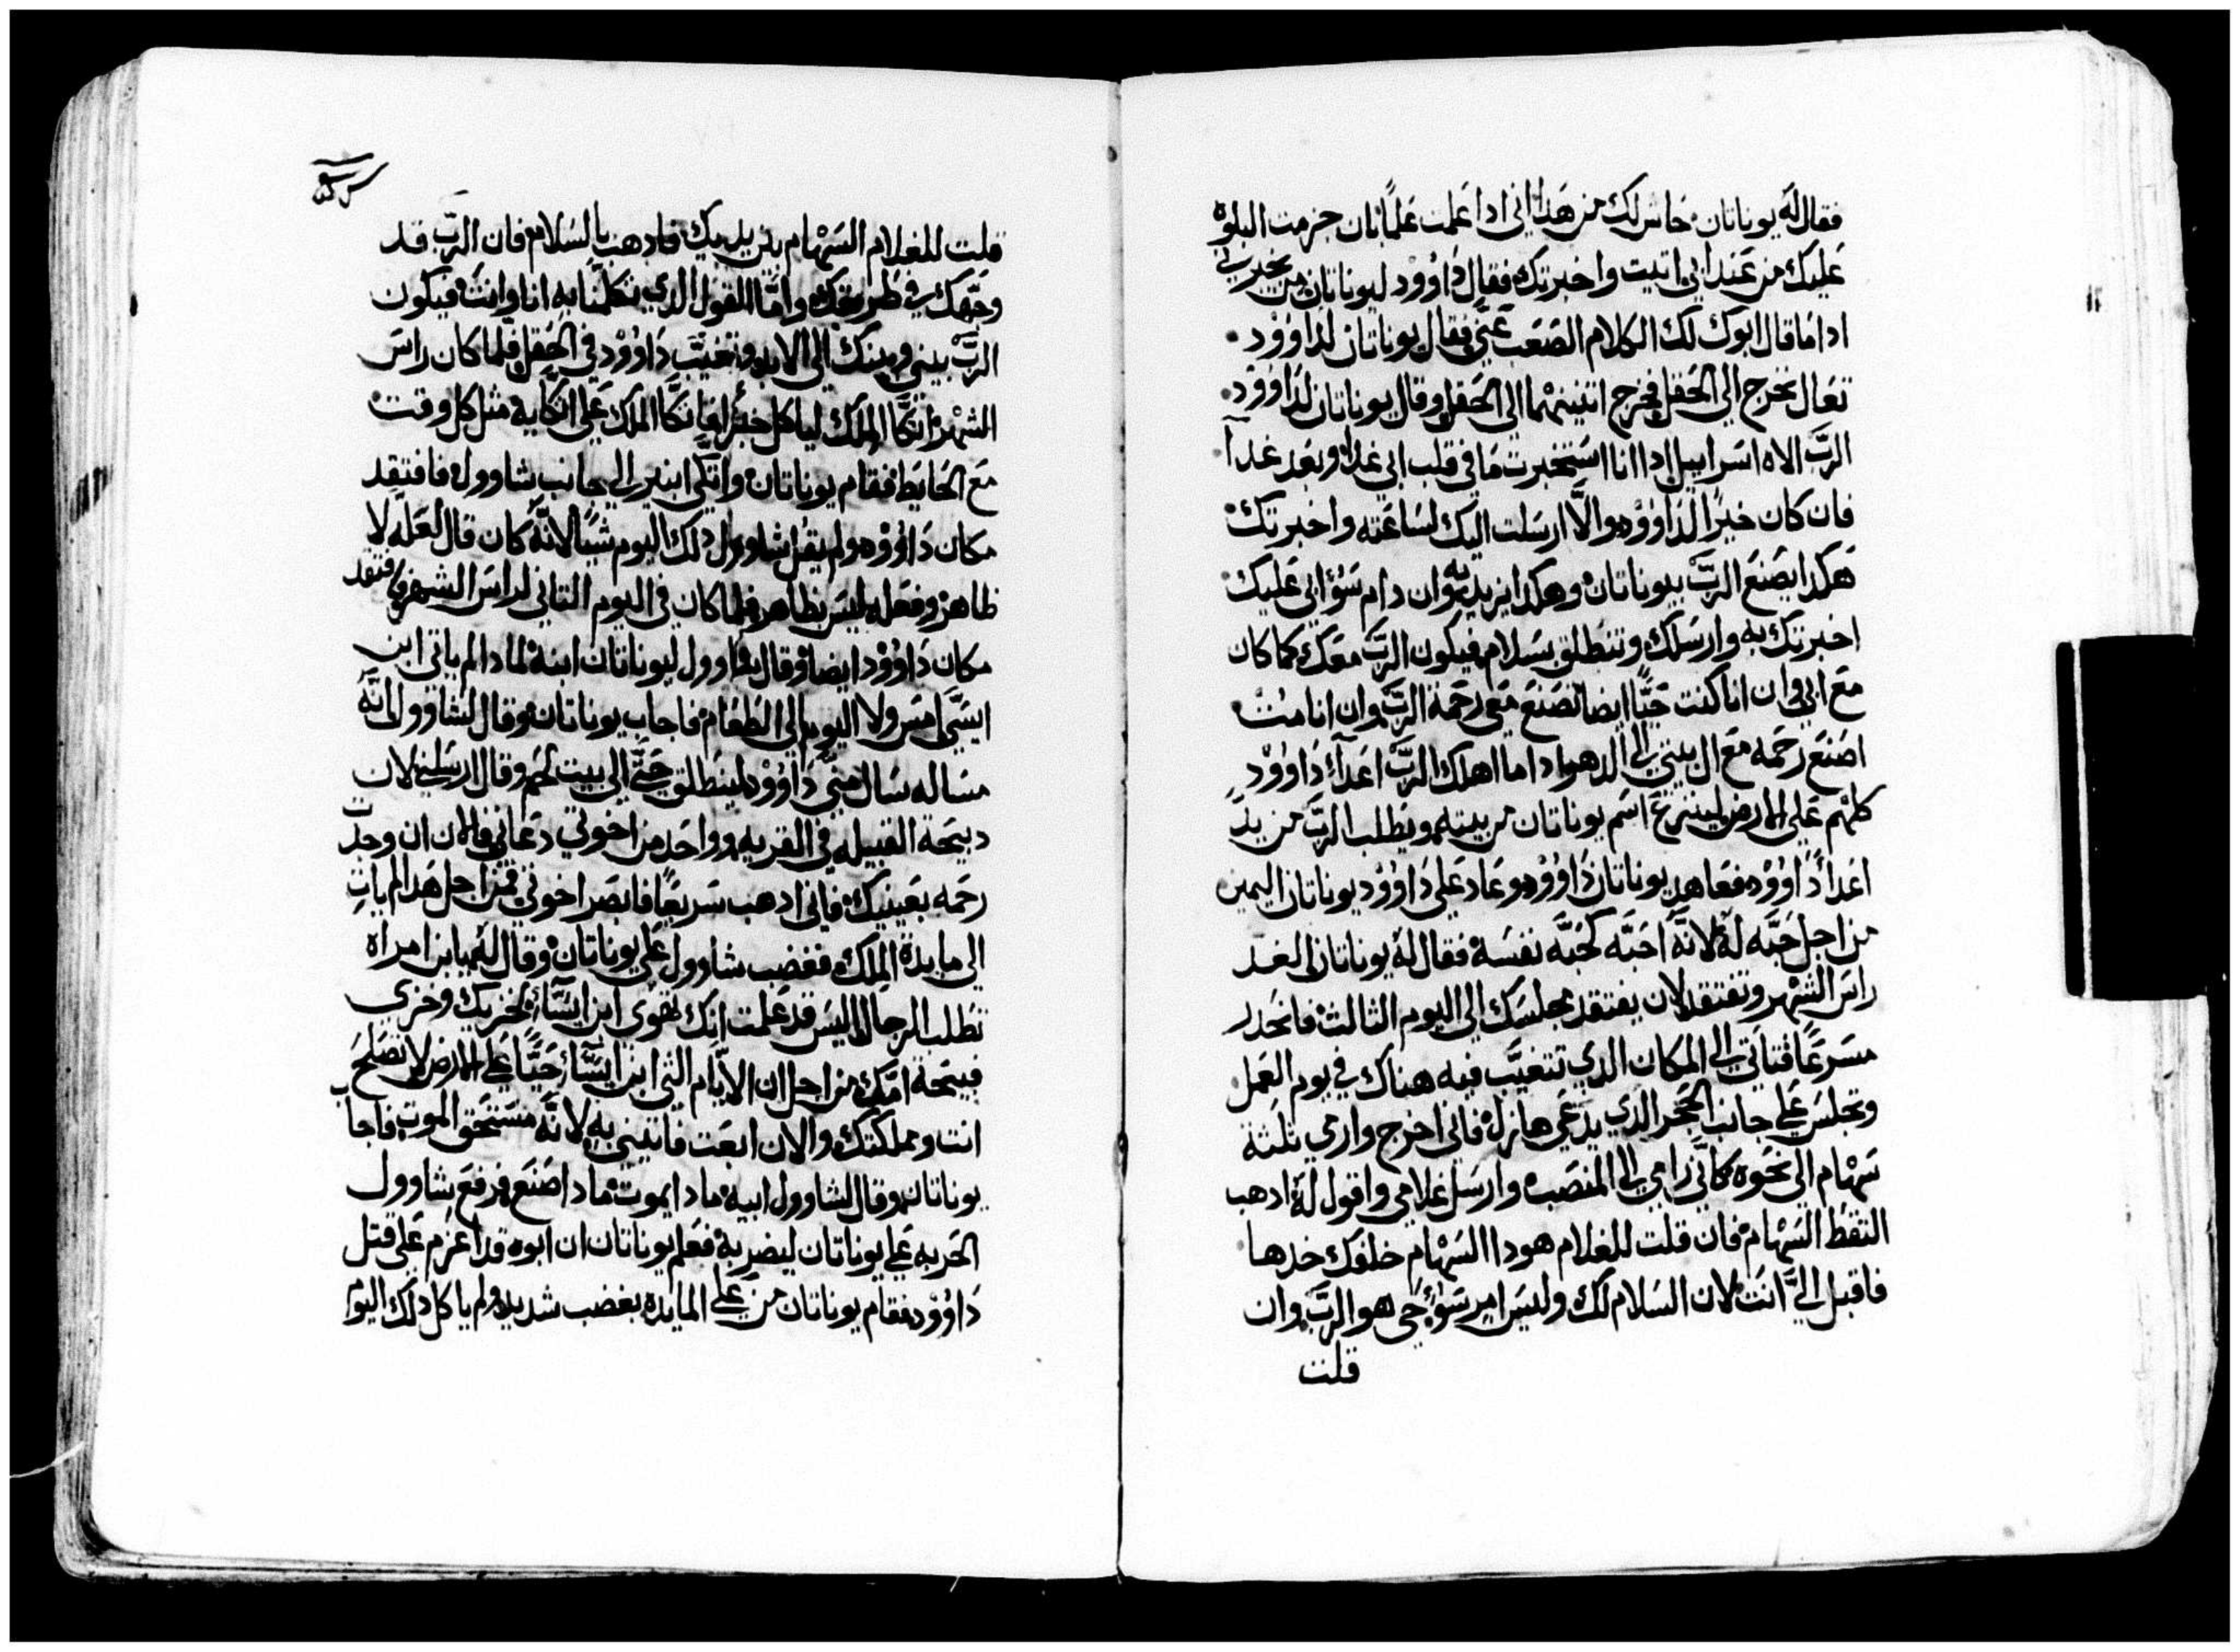 فقال له يوناتان حاش لك من هدا اني ادا علمت علمًا بان جزمت البلوه
عليك من عند ابي اتيت واخبرتك فقال داوود ليوناتان من يخبرني
ادا ما قال ابوك لك الكلام الصعب عني فقال يوناتان لداوود
تعال نخرج الي الحقل فخرج اتنينهما الي الحقل وقال يوناتان لداوود
الربّ الاه اسراييل ادا انا استخبرت ما في قلب ابي غدًا وبعد غدآ
فان كان خيرًا لداوود والّا ارسلت اليك لساعته واخبرتك
هكدا يصنع الربّ بيوناتان وهكدا يزيد به وان دام سؤ ابي عليك
اخبرتك به وارسلك وتنطلق بسلام فيكون الربّ معك كما كان
مع ابي وان انا كنت حيًّا ايضا تصنع معي رحمة الربّ وان انا مت
اصنع رحمه مع ال بيتي الي الدهر وادا ما اهلك الربّ اعدآ داوود
كلهم علي الارض لينتزع اسم يوناتان من بيته ويطلب الربّ من يد
اعدآ داوود فعاهد يوناتان داوود وعاد علي داوود يوناتان اليمين
من اجل حبّه له لانّه احبّه كحبّه نفسه فقال له يوناتان ان الغد
راس الشهر وتفتقد لان يفتقد مجلسك الي اليوم التالت فانحدر
مسرعًا فتاتي الي المكان الدي تتغيّب فيه هناك في يوم العمل
وتجلس علي جانب الحجر الدي يدعي هازل فاني اخرج وارمي بثلثة
سهام الي نحوه كانّي رامي الي المنصب وارسل غلامي واقول له ادهب
التقط السهام فان قلت للغلام هودا السهام خلفك خدها
فاقبل اليّ انت لان السلام لك وليس امر سوء حي هو الربّ وان
قلت
قلت للغلام السهام بين يديك فادهب بالسلام فان الربّ قد
وجّهك في طريقك وامّا القول الدي تكلمنا به انا وانت فيكون
الربّ بيني وبينك الي الابد وتغيّب داوود في الحقل فلما كان راس
الشهر اتكّا الملك لياكل خبزًا فاتكّا الملك علي اتكّايه مثل كل وقت
مع الحايط فقام يوناتان واتكي ابنير الي جانب شاوول فافتقد
مكان داوود ولم يقل شاوول دلك اليوم شيًا لانّه كان قال لعله لا
ظاهر وفعله ليس بظاهر فلما كان في اليوم التاني لراس الشهر افتقد
مكان داوود ايضا وقال شاوول ليوناتان ابنه لمادا لم ياتي ابن
ايسّي امس ولا اليوم الي الطعام فاجاب يوناتان وقال لشاوول انّه
مساله سال منّي داوود لينطلق حتّي الي بيت لحم وقال ارسلني لان
دبيحة القبيله في القريه وواحد من اخوتي دعاني فالان ان وجدت
رحمه بعينيك فاني ادهب سريعًا فابصر اخوتي فمن اجل هدا لم يات
الي مايدة الملك فغضب شاوول علي يوناتان وقال له يا ابن امراه
تطلب الرجال اليس قد علمت انك تهوي ابن ايسّآ لخزيك وخزي
قبيحة امّك من اجل ان الايّام التي ابن ايسّآ حيًّا علي الارض لن تصلح
انت ومملكتك والان ابعت فاتيني به لانّه مستحق الموت فاجاب
يوناتان وقال لشاوول ابيه مادا يموت مادا اصنع فرفع شاوول
الحربه علي يوناتان ليضربه فعلم يوناتان ان ابوه قد اعزم علي قتل
داوود فقام يوناتان من علي المايده بغضب شديد ولم ياكل دلك اليوم